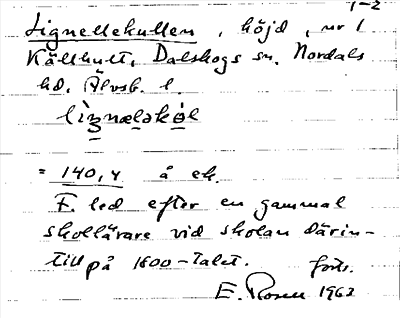 1-2
Lignellekullen, höjd, nr 1
Källhult, Dalskogs sn. Nordals
hd. Älvsb. l.
= 140,4 å ek.
F. led efter en gammal
skollärare vid skolan därin-
till på 1800-talet. forts.
E. Rosen 1963